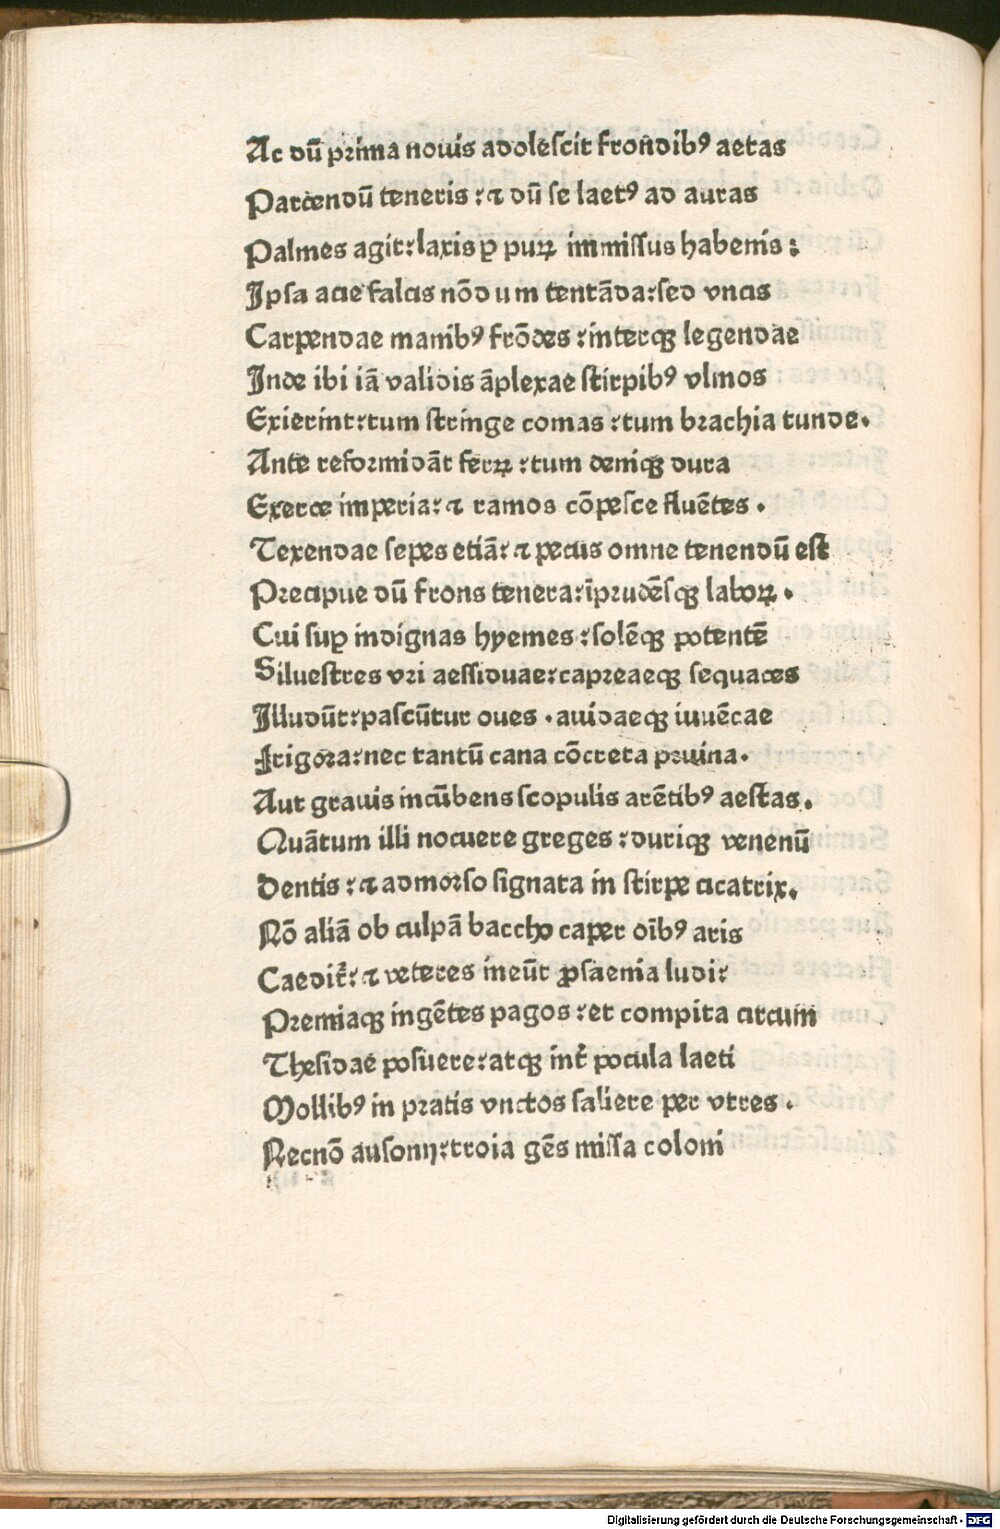 Ac dū prima nouis adolescit frondibꝰ aetas
Parcendū teneris : ⁊ dū se laetꝰ ad auras
Palmes agit : laxis ꝑ puꝝ immissus habenis :
Ipsa acie falcis nōdum tentāda : sed vncis
Carpendae manibꝰ frōdes : interqꝫ legendae
Inde ibi iā validis āplexae stirpibꝰ vlmos
Exierint : tum stringe comas : tum brachia tunde.
Ante reformidāt ferꝝ : tum deniqꝫ dura
Exerce imperia : ⁊ ramos cōpesce fluētes .
Texendae sepes etiā : ⁊ pecus omne tenendū est
Precipue dū frons tenera : īprudēsqꝫ laboꝝ .
Cui suꝑ indignas hyemes : solēqꝫ potentē
Siluestres vri aessiduae : capreaeqꝫ sequaces
Illudūt : pascūtur oues . auidaeqꝫ iuuēcae
Frigora : nec tantū cana cōcreta pruina .
Aut grauis incūbens scopulis arētibꝰ aestas .
Quātum illi nocuere greges : duriqꝫ venenū
Dentis : ⁊ admorso signata in stirpe cicatrix .
Nō aliā ob culpā baccho caper oībꝰ aris
Caedit̃ : ⁊ veteres ineūt ꝓsaenia ludi :
Premiaqꝫ ingētes pagos : et compita circum
Thesidae posuere : atqꝫ int̃ pocula laeti
Mollibꝰ in pratis vnctos saliere per vtres .
Necnō ausonij : troia gēs missa coloni
Digitalisierung gefördert durch die Deutsche Forschungsgemeinschaft - DFG